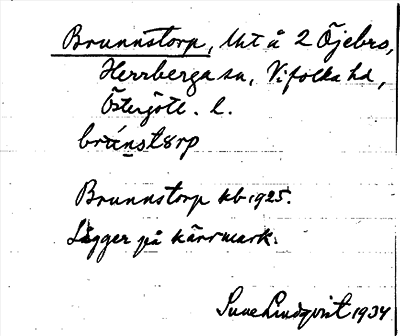 Brunnstorp, Uht å 2 Öjebro,
Herrberga sn, Vifolka hd,
Östergötl. l.
brúnstørp
Brunnstorp kb 1925.
Ligger på kärrmark.
Sune Lindqvist 1934